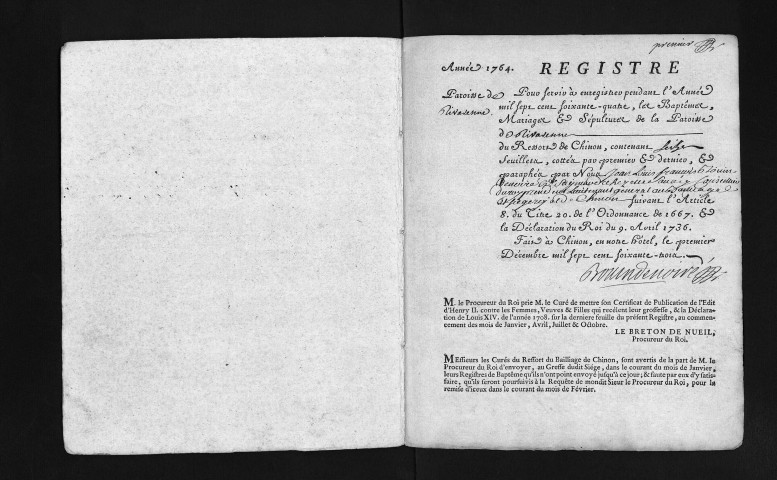 premier
Année 1764. REGISTRE
Paroisse de Rivarenne.
Pour servir à enregistrer pendant l'Année
mil sept cent soixante-quatre, les Baptêmes,
Mariages & Sépultures de la Paroisse
de Rivarenne
du Ressort de Chinon, contenant seize
feuillets, cottés par premier & dernier, &
paraphés par Nous Jean Louis François
Conseiller
Lieutenant General
de Chinon suivant l'Article
8. du Titre 20. de l'Ordonnance de 1667. &
la Déclaration du Roi du 9. Avril 1736.
Fait à Chinon, en notre hôtel, le premier
Décembre mil sept cent soixante-trois.
M. le Procureur du Roi prie M. le Curé de mettre son Certificat de Publication de l'Edit
d'Henry II. contre les Femmes, Veuves & Filles qui recélent leur grossesse, & la Déclara-
tion de Louis XIV. de l'année 1708. sur la derniere feuille du présent Registre, au commen-
cement des mois de Janvier, Avril, Juillet & Octobre.
LE BRETON DE NUEIL,
Procureur du Roi.
Messieurs les Curés du Ressort du Bailliage de Chinon, sont avertis de la part de M. le
Procureur du Roi d'envoyer, au Greffe dudit Siége, dans le courant du mois de Janvier,
leurs Registres de Baptême qu'ils n'ont point envoyé jusqu'à ce jour; & faute par eux d'y satis-
faire, qu'ils seront poursuivis à la Requête de mondit Sieur le Procureur du Roi, pour la
remise d'iceux dans le courant du mois de Février.